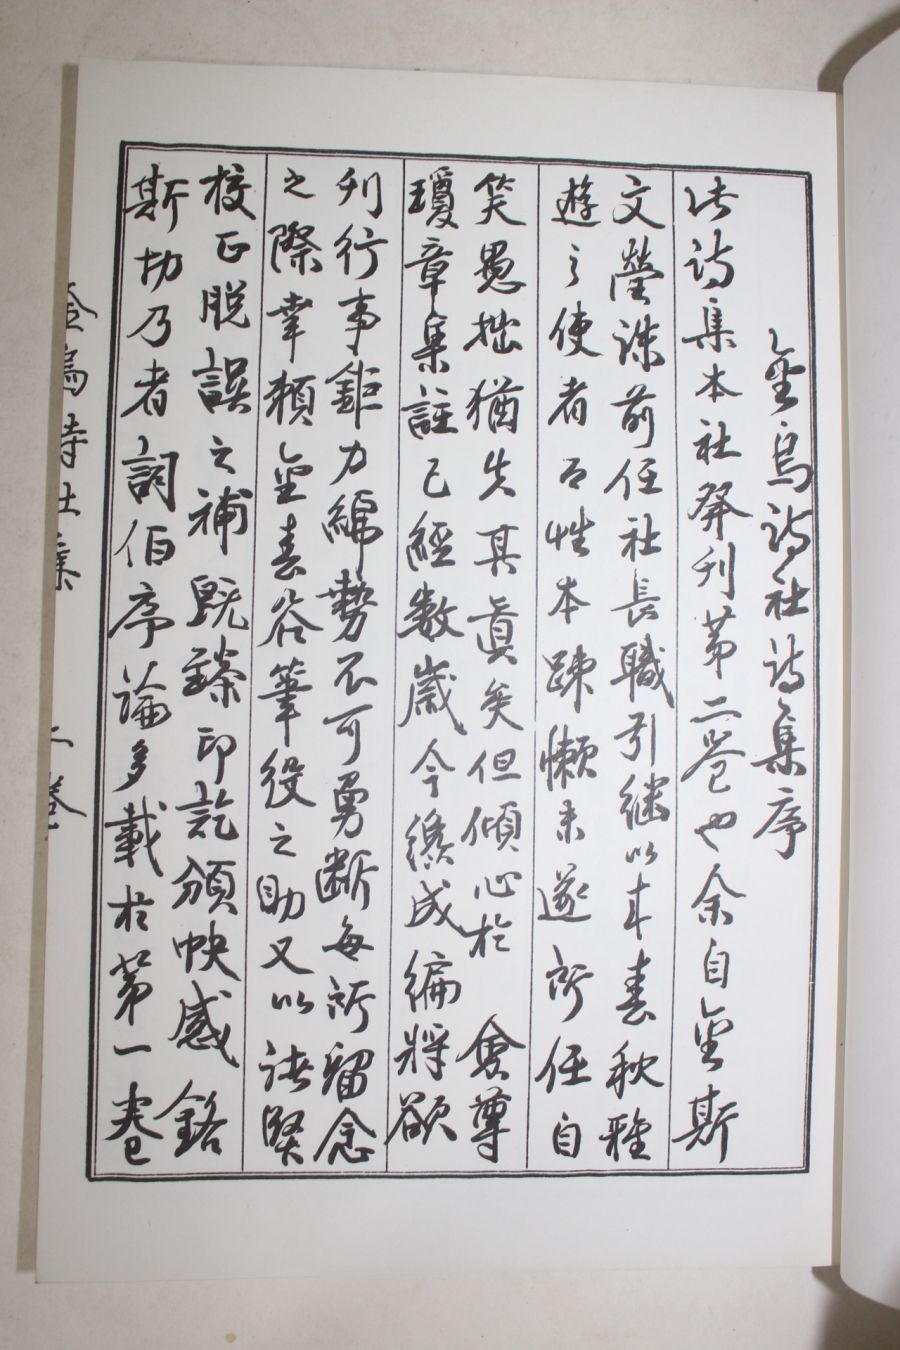 金烏詩社詩集序
此詩集本社發刊第二卷也余自金斯
文瑩洙前任社長職引繼以來春秋雅
遊之使者而性本踈懶未遂所任自
笑愚拙猶失其眞矣但傾心於 會尊
瓊章集註已經數歲今纔成編將欲
刊行事鉅力綿勢不可勇斷每所留念
之際幸賴金春谷筆役之助又以諸賢
校正脫誤之補旣臻印訖頒帙感銘
斯切乃者詞伯序論多載於第一卷
金烏詩社集 二卷